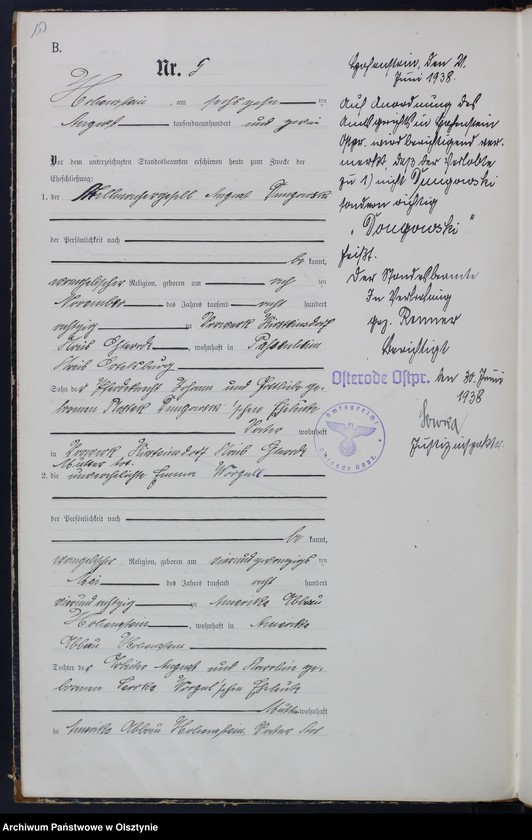 B.
Nr. 8
Hohenstein, am sechszehn ten
August tausendneunhundert und zwei
Vor dem unterzeichneten Standesbeamten erschienen heute zum Zwecke der
Eheschließung:
1. der August Dungowski
der Persönlichkeit nach
be kannt,
evangelischer Religion, geboren am ten
November des Jahres tausend acht hundert
achtzig zu Vorwerk
Kreis Osterode, wohnhaft in Passenheim
Kreis Ortelsburg
Sohn des Pferdeknecht Johann und Gottliebe ge-
borenen Dungowski'schen Eheleute
Vater wohnhaft
in Vorwerk Kreis Osterode
Mutter tot.
2. die unverehelichte Emma
der Persönlichkeit nach
be kannt,
evangelischer Religion, geboren am vierundzwanzigs ten
Mai des Jahres tausend acht hundert
vierundachtzig zu Amerika Abbau
Hohenstein, wohnhaft in Amerika
Abbau Hohenstein
Tochter des Arbeiter August und Karoline ge-
borenen 'schen Eheleute
Mutter wohnhaft
in Amerika Abbau Hohenstein, Vater tot
Hohenstein, den 21.
Juni 1938.
Auf Anordnung des
Amtsgerichts in Hohenstein
Ostpr. wird berichtigend ver-
merkt, daß der Verlobte
zu 1) nicht Dungowski
sondern richtig
„Dongowski"
heißt.
Der Standesbeamte
In Vertretung
gez. Renner
Berichtigt
Osterode Ostpr. den 30. Juni
1938
Justizinspektor
Amtsgericht
Osterode Ostpr.
Archiwum Państwowe w Olsztynie